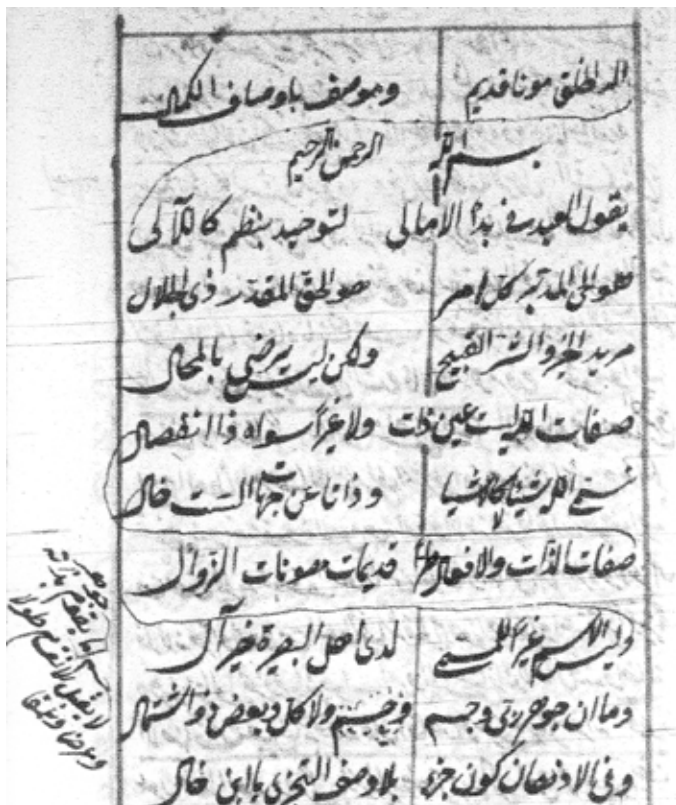 اله الخلق مولانا قديم وموصف باوصاف الكمال
بسم الله الرحمن الرحيم
يقول العبد في بدأ الأمالي لتوحيد بنظم كاللآلى
هو الحى المدبر كل امر هو الحق المقدر ذى الجلال
مريد الخير والشر القبيح ولكن ليس يرضى بالمحال
صفات الله ليست عين ذات ولا غيرا سواه ذا انفصال
نسمى الله شيئا لا كالاشيا وذاتا عن جهات الست خال
صفات الذات والافعال طرا قديمات مصونات الزوال
وليس الاسم غيرا للمسمى لدى اهل البصيرة خير آل
وما ان جوهر ربى وجسم ولا كل وبعض ذو اشتمال
وفى الاذهان كون جزء بلا وصف التجزى يا ابن خال
جوهر
ما يقوم بذاته
جسم
لا يقبل
طولا
وعرضا وعمقا